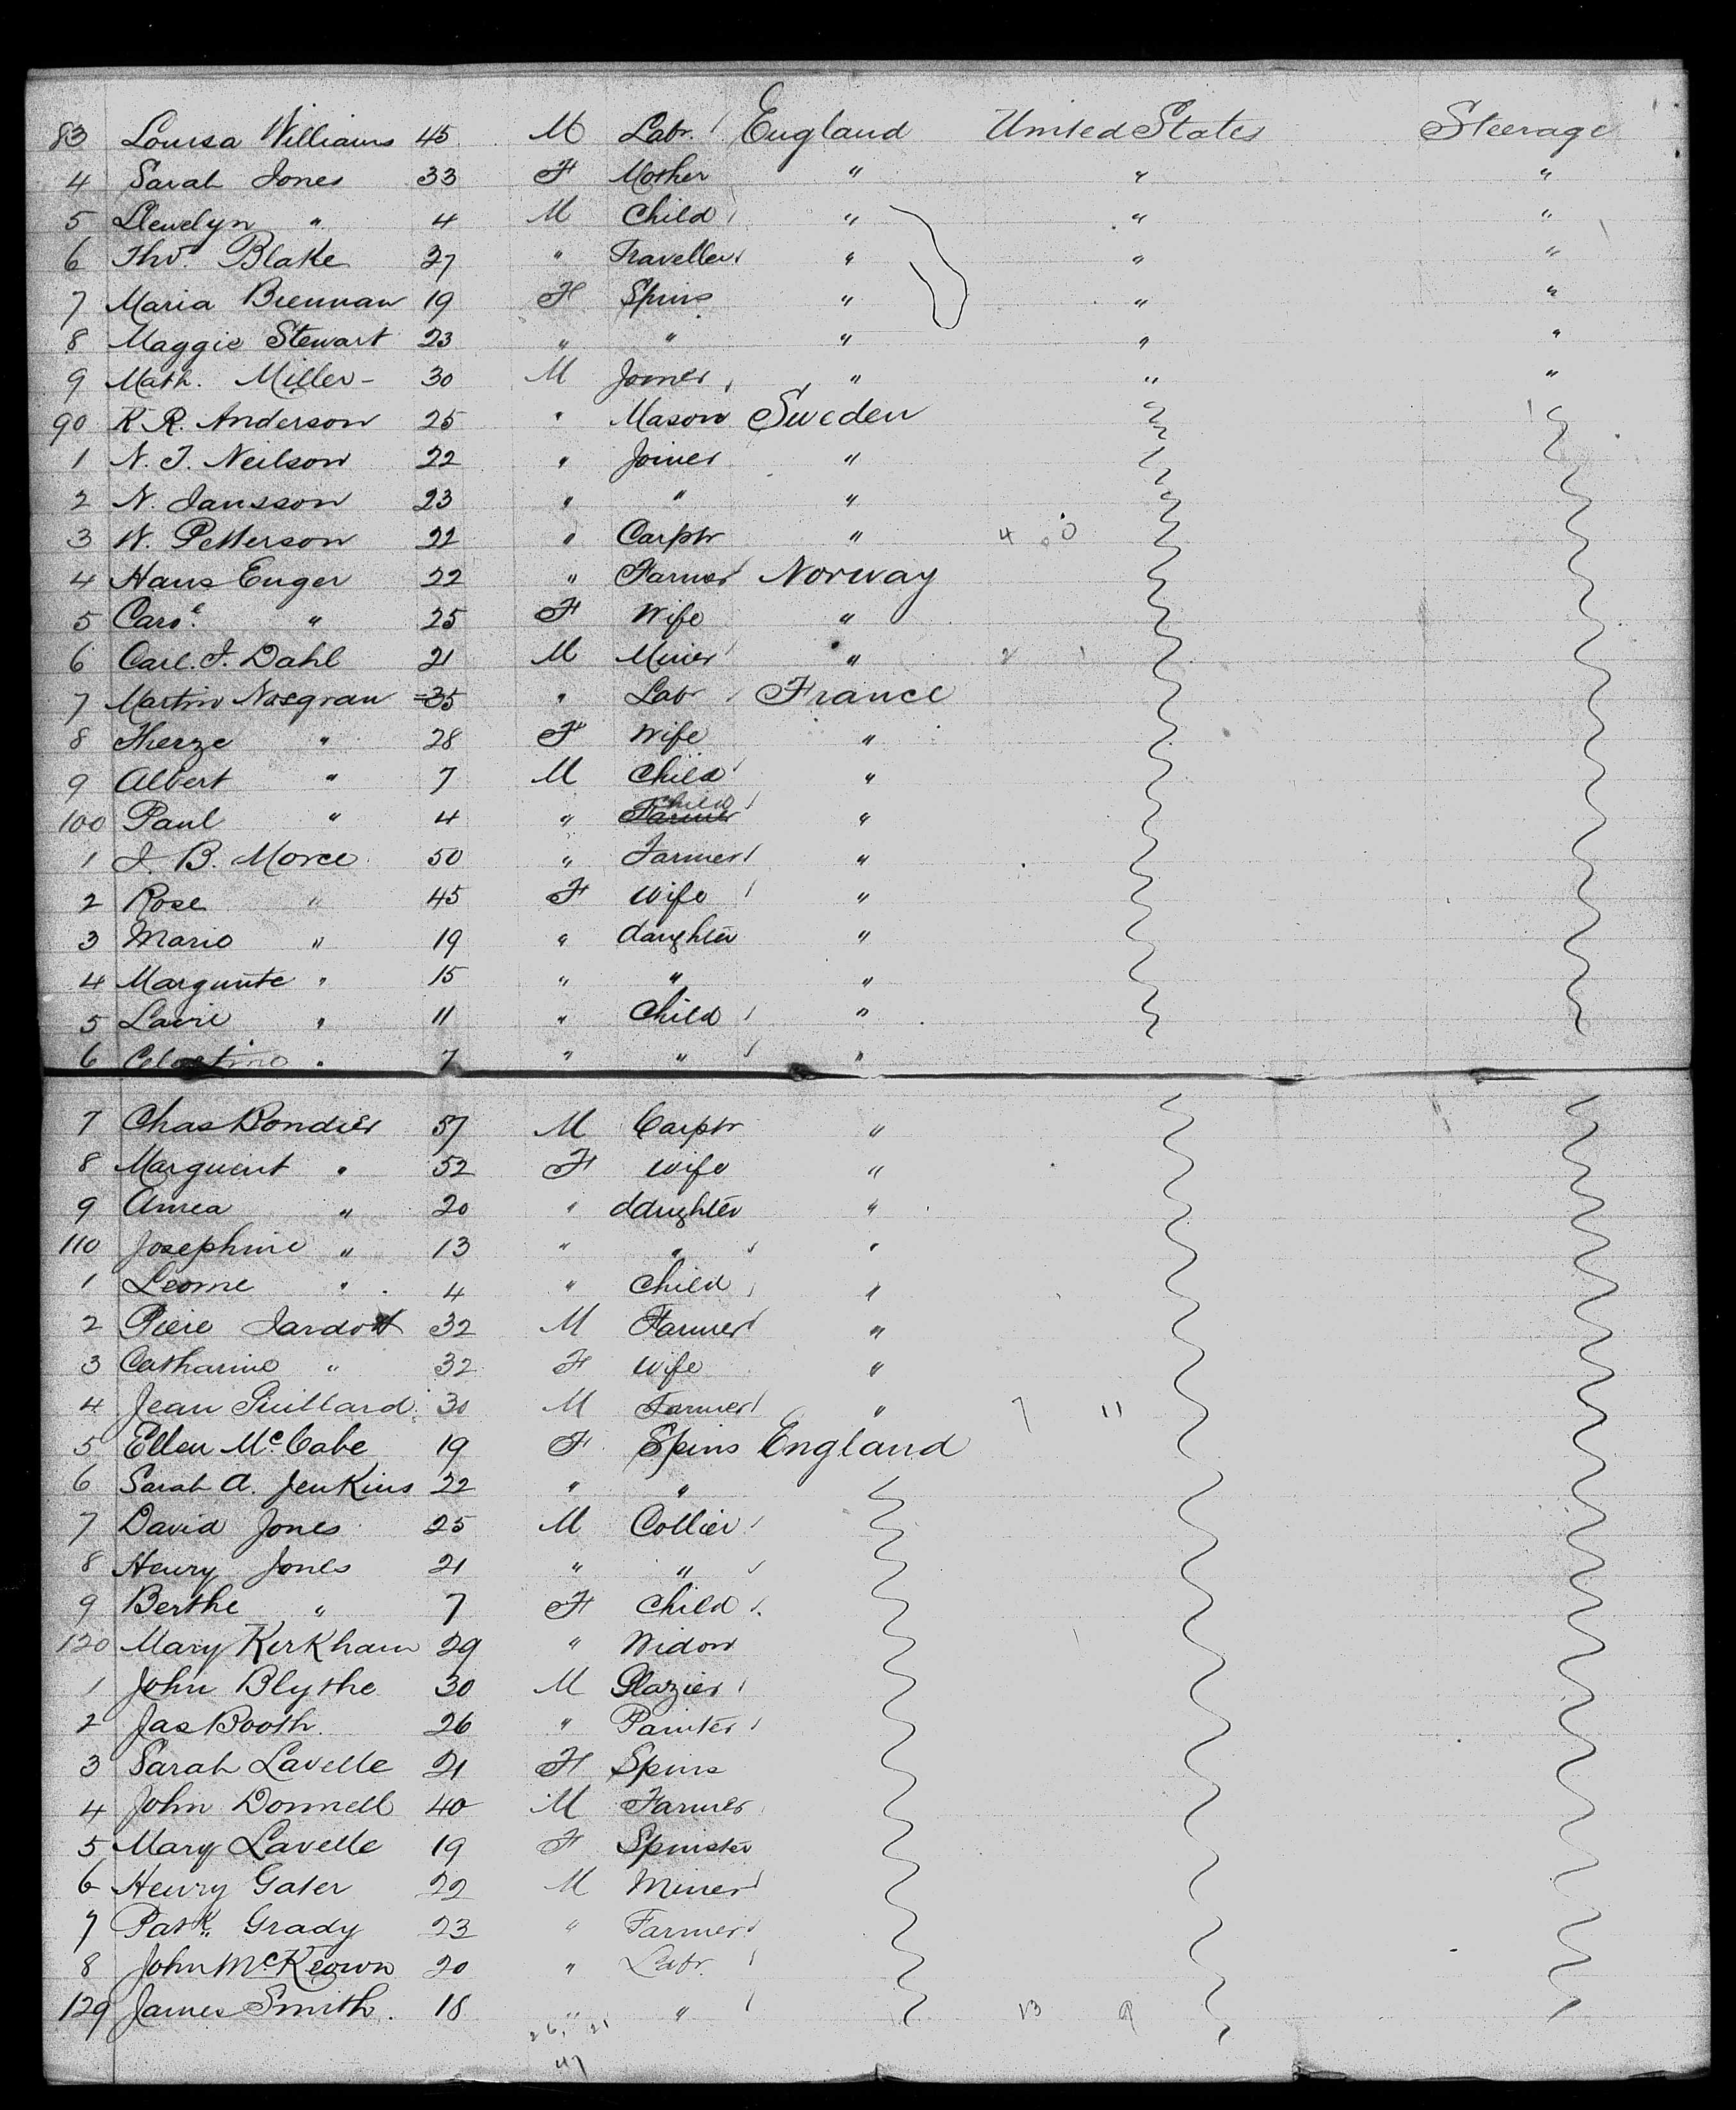 83 Louisa Williams 45 M Labr. England United States Steerage
4 Sarah Jones 33 F Mother " " "
5 Llewelyn " 4 M Child " " "
6 Thos. Blake 27 " Traveller " " "
7 Maria Brennan 19 F Spins " " "
8 Maggie Stewart 23 " " " " "
9 Math. Miller - 30 M Joiner " " "
90 K. R. Anderson 25 " Mason Sweden
1 N. J. Neilson 22 " Joiner "
2 N. Jansson 23 " " "
3 W. Petterson 22 " Carptr " 4 0
4 Hans Enger 22 " Farmer Norway
5 Caroe. " 25 F Wife "
6 Carl. J. Dahl 21 M Miner " 2 1
7 Martin Nosgran 35 " Labr France
8 Therze " 28 F Wife "
9 Albert " 7 M Child "
100 Paul " 4 " Farmer Child "
1 J. B. Morce 50 " Farmer "
2 Rose " 45 F Wife "
3 Marie " 19 " daughter "
4 Margunte " 15 " " "
5 " 11 " Child "
6 Celestine " 7 " " "
7 Chas Bondier 57 M Carptr "
8 Marguerit " 52 F Wife "
9 " 20 " daughter "
110 Josephine " 13 " " "
1 Leonie " 4 " Child "
2 Piere Jardot 32 M Farmer "
3 Catharine " 32 F Wife "
4 Jean Puillard 30 M Farmer " 7 11
5 Ellen McCabe 19 F Spins England
6 Sarah A. Jenkins 22 " "
7 David Jones 25 M Collier
8 Henry Jones 21 " "
9 Berthe " 7 F Child
120 Mary Kirkham 29 " Widow
1 John Blythe 30 M Glazier
2 Jas Booth. 26 " Painter
3 Sarah Lavelle 21 F Spins
4 John Donnell 40 M Farmer
5 Mary Lavelle 19 F Spinster
6 Henry Gater 22 M Miner
7 Patk. Grady 23 " Farmer
8 John McKeown 20 " Labr.
129 James Smith. 18 " " 13 9
26 21
47